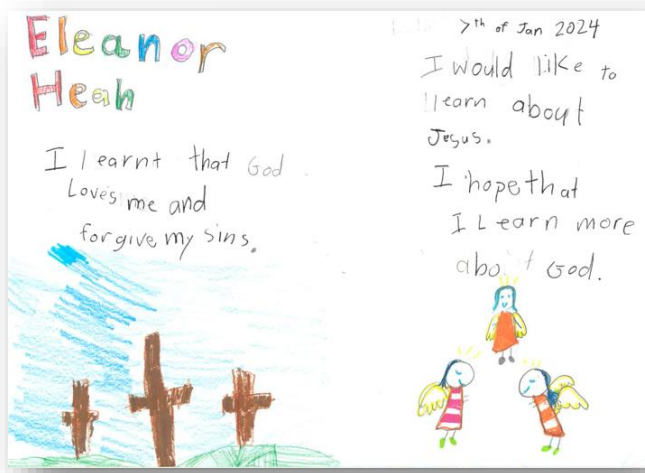 Eleanor
Heah
I learnt that God
Loves me and
forgive my sins.
7th of Jan 2024
I would like to
learn about
Jesus.
I hope that
I Learn more
about God.